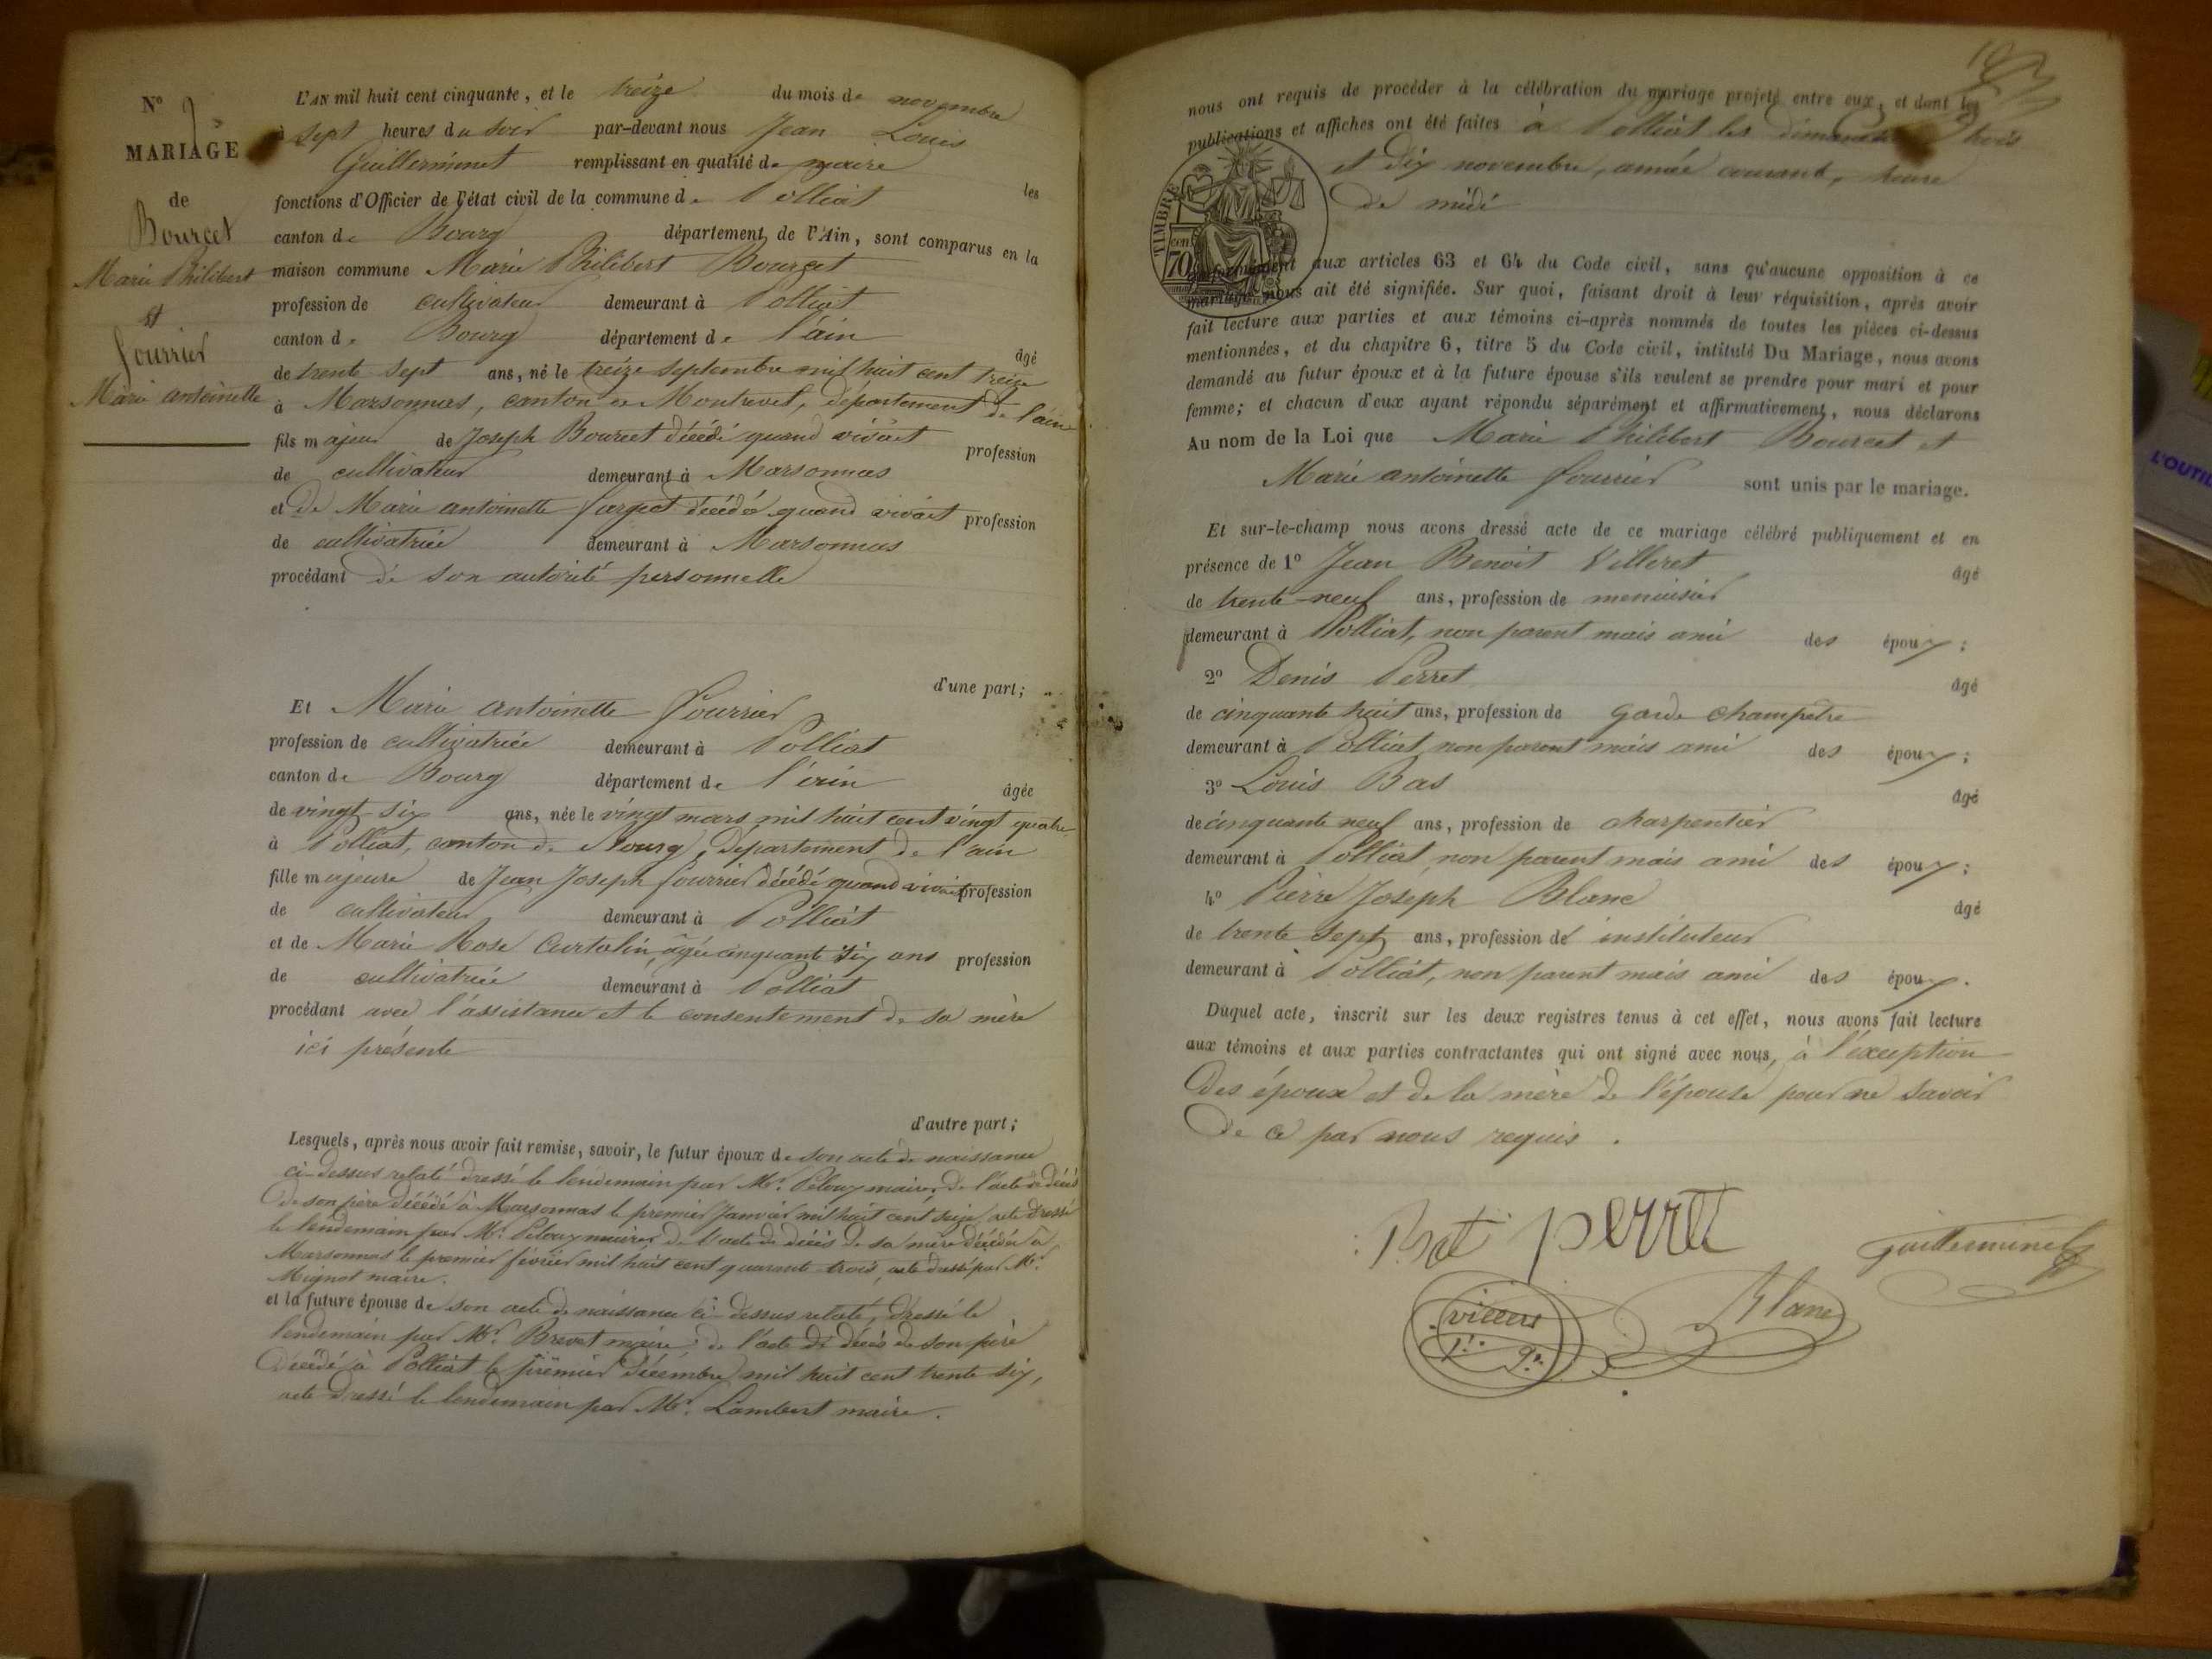 N° 9
MARIAGE
de
Bourcet
Marie Philibert
et
fourrier
Marie antoinette
L'AN mil huit cent cinquante, et le treize du mois de novembre
à sept heures du soir par-devant nous Jean Louis
Guillerminet remplissant en qualité de maire les
fonctions d'Officier de l'état civil de la commune de Polliat
canton de Bourg département de l'Ain, sont comparus en la
maison commune Marie Philibert Bourcet
profession de cultivateur demeurant à Polliat
canton de Bourg département de l'ain âgé
de trente sept ans, né le treize septembre mil huit cent treize
à Marsonnas, canton de Montrevel, département de l'ain
fils majeur de Joseph Bourcet décédé quand vivait profession
de cultivateur demeurant à Marsonnas
et de Marie antoinette farget décédée quand vivait profession
de cultivatrice demeurant à Marsonnas
procédant de son autorité personnelle
d'une part;
Et Marie antoinette fourrier
profession de cultivatrice demeurant à Polliat
canton de Bourg département de l'ain âgée
de vingt six ans, née le vingt mars mil huit cent vingt quatre
à Polliat, canton de Bourg, département de l'ain
fille majeure de Jean Joseph fourrier décédé quand vivait profession
de cultivateur demeurant à Polliat
et de Marie Rose Curtalin, âgée cinquante six ans profession
de cultivatrice demeurant à Polliat
procédant avec l'assistance et le consentement de sa mère
ici présente
d'autre part;
Lesquels, après nous avoir fait remise, savoir, le futur époux de son acte de naissance
ci-dessus relaté dressé le lendemain par Mr. Peloux maire, de l'acte de décès
de son père décédé à Marsonnas le premier Janvier mil huit cent seize, acte dressé
le lendemain par Mr. Peloux maire de l'acte de décès de sa mère décédée à
Marsonnas le premier février mil huit cent quarante trois, acte dressé par Mr.
Mignot maire.
et la future épouse de son acte de naissance ci-dessus relaté, dressé le
lendemain par Mr. Brevet maire, de l'acte de décès de son père
décédé à Polliat le premier décembre mil huit cent trente six,
acte dressé le lendemain par Mr. Lambert maire.
nous ont requis de procéder à la célébration du mariage projeté entre eux, et dont les
publications et affiches ont été faites à Polliat les dimanches trois
et dix novembre, année courante, heure
de midi
TIMBRE
70
conformément aux articles 63 et 64 du Code civil, sans qu'aucune opposition à ce
mariage nous ait été signifiée. Sur quoi, faisant droit à leur réquisition, après avoir
fait lecture aux parties et aux témoins ci-après nommés de toutes les pièces ci-dessus
mentionnées, et du chapitre 6, titre 5 du Code civil, intitulé Du Mariage, nous avons
demandé au futur époux et à la future épouse s'ils veulent se prendre pour mari et pour
femme; et chacun d'eux ayant répondu séparément et affirmativement, nous déclarons
Au nom de la Loi que Marie Philibert Bourcet et
Marie antoinette fourrier sont unis par le mariage.
Et sur-le-champ nous avons dressé acte de ce mariage célébré publiquement et en
présence de 1° Jean Benoit Villeret âgé
de trente-neuf ans, profession de menuisier
demeurant à Polliat, non parent mais ami des époux;
2° Denis Perret âgé
de cinquante huit ans, profession de garde champêtre
demeurant à Polliat non parent mais ami des époux;
3° Louis Bas âgé
de cinquante neuf ans, profession de charpentier
demeurant à Polliat non parent mais ami des époux;
4° Pierre Joseph Blanc âgé
de trente sept ans, profession de instituteur
demeurant à Polliat, non parent mais ami des époux.
Duquel acte, inscrit sur les deux registres tenus à cet effet, nous avons fait lecture
aux témoins et aux parties contractantes qui ont signé avec nous, à l'exception
des époux et de la mère de l'épouse pour ne savoir
de ce par nous requis.
perret
Guillerminet
Blanc
L'OUTIL